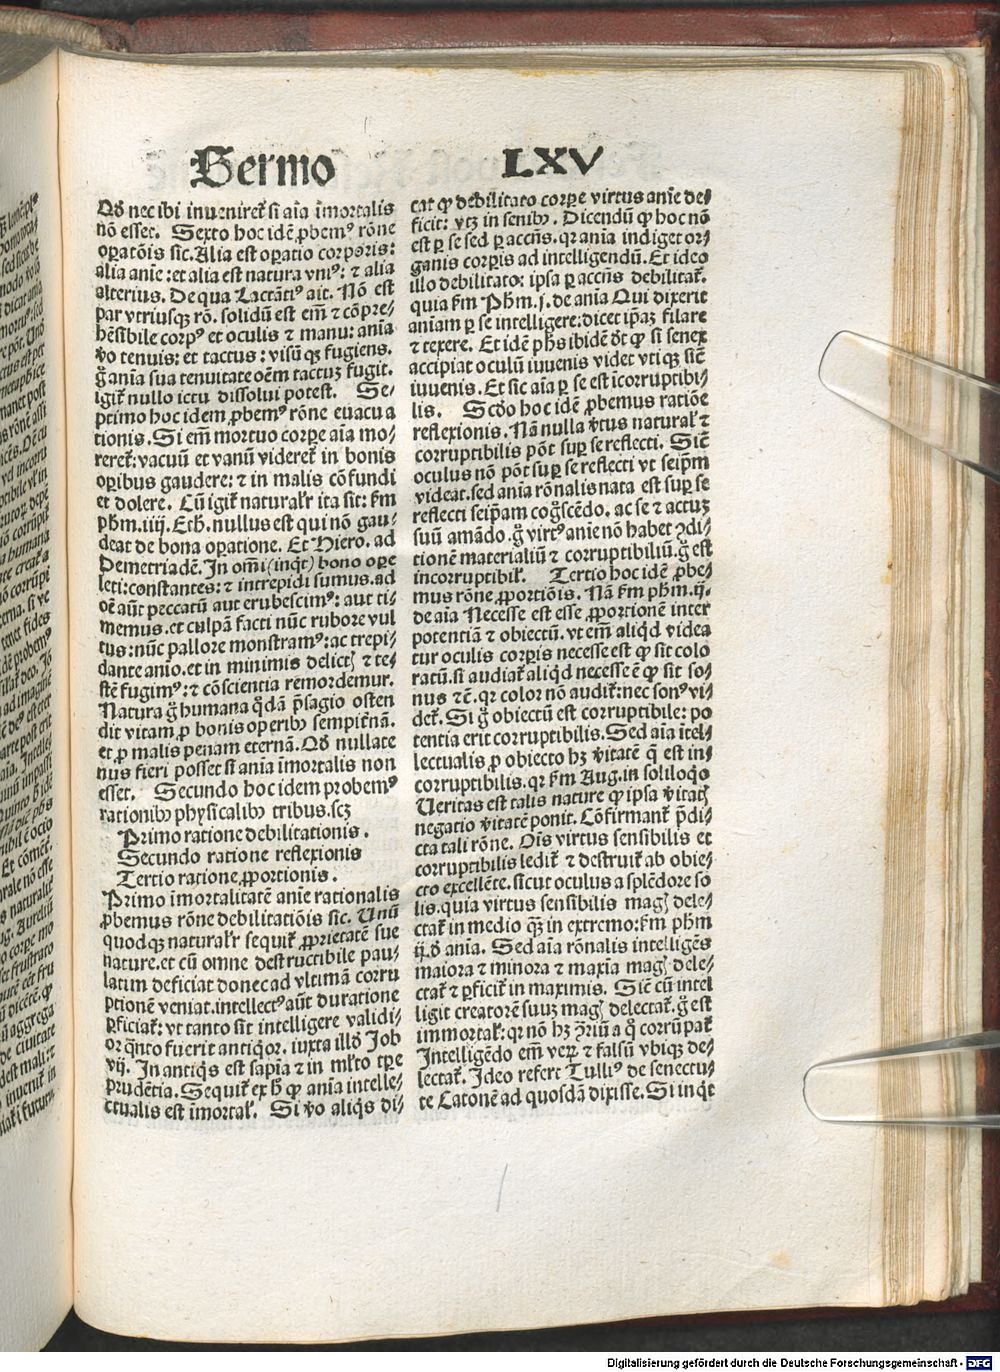 Sermo LXV
Qď nec ibi inueniret᷑ si aīa īmortalis
nō esset. Sexto hoc idē ꝓbemꝰ rōne
oꝑatōis sic. Alia est oꝑatio corporis:
alia anīe: et alia est natura vniꝰ: ⁊ alia
alterius. De qua Lactātiꝰ ait. Nō est
par vtriusqꝫ rō. solidū est em̄ ⁊ cōpre⸗
hēsibile corpꝰ et oculis ⁊ manu: anīa
ꝟo tenuis: et tactus: visūqꝫ fugiens.
g̊ anīa sua tenuitate oēm tactuꝫ fugit.
Igit᷑ nullo ictu dissolui potest. Se⸗
ptimo hoc idem ꝓbemꝰ rōne euacua
tionis. Si em̄ mortuo corꝑe aīa mo⸗
reret᷑: vacuū et vanū videret᷑ in bonis
oꝑibus gaudere: ⁊ in malis cōfundi
et dolere. Cū igit᷑ natural᷑r ita sit: ẜm
ph̄m. iiij. Eth̄. nullus est qui nō gau⸗
deat de bona oꝑatione. Et Hiero. ad
Demetriadē. In om̄i (inq̄t) bono oꝑe
leti: constantes: ⁊ intrepidi sumus. ad
oē aūt peccatū aut erubescimꝰ: aut ti⸗
memus. et culpā facti nūc rubore vul
tus: nūc pallore monstramꝰ: ac trepi⸗
dante anīo. et in minimis delictꝭ ⁊ te⸗
stē fugimꝰ: ⁊ cōscientia remordemur.
Natura g̊ humana q̇dā p̄sagio osten
dit vitam, ꝓ bonis oꝑeribꝫ sempit᷑nā.
et ꝓ malis penam eternā. Qď nullate
nus fieri posset si anīa īmortalis non
esset. Secundo hoc idem probemꝰ
rationibꝫ physicalibꝫ tribus. scꝫ
Primo ratione debilitationis.
Secundo ratione reflexionis
Tertio ratione ꝓportionis.
Primo īmortalitatē anīe rationalis
ꝓbemus rōne debilitatiōis sic. Unū
quodqꝫ natural᷑r sequit᷑ ꝓprietatē sue
nature. et cū omne destructibile pau⸗
latim deficiat donec ad vltimā corru
ptionē veniat. intellectꝰ aūt duratione
ꝑficiat᷑: vt tanto sit intelligere validi⸗
or q̄nto fuerit antiq̇or. iuxta illď Job
vij. In antiq̇s est sapīa ⁊ in ml᷑to tꝑe
prudētia. Sequit᷑ ex h̄ ꝙ anīa intelle⸗
ctualis est īmortal᷑. Si ꝟo aliq̇s di⸗
cat ꝙ debilitato corꝑe virtus anīe de⸗
ficit: vtꝫ in senibꝫ. Dicendū ꝙ hoc nō
est ꝑ se sed ꝑ accn̄s. qꝛ anīa indiget or⸗
ganis corꝑis ad intelligendū. Et ideo
illo debilitato: ipsa ꝑ accn̄s debilitat᷑.
quia ẜm Ph̄m. j. de anīa Qui dixerit
anīam ꝑ se intelligere: dicet ip̄aꝫ filare
⁊ texere. Et idē ph̄s ibidē dt̄ ꝙ si senex
accipiat oculū iuuenis videt vtiqꝫ sic̄
iuuenis. Et sic aīa ꝑ se est īcorruptibi⸗
lis. Scďo hoc idē ꝓbemus ratiōe
reflexionis. Nā nulla ꝟtus natural᷑ ⁊
corruptibilis pōt suꝑ se reflecti. Sic̄
oculus nō pōt suꝑ se reflecti vt seip̄m
videat. sed anīa rōnalis nata est suꝑ se
reflecti seip̄am cog̊scēdo. ac se ⁊ actuꝫ
suū amādo. g̊ virtꝰ anīe nō habet ꝯdi⸗
tionē materialiū ⁊ corruptibiliū. g̊ est
incorruptibil᷑. Tertio hoc idē ꝓbe⸗
mus rōne, ꝓportiōis. Nā ẜm ph̄m. ij.
de aīa Necesse est esse ꝓportionē inter
potentiā ⁊ obiectū. vt em̄ aliq̇d videa
tur oculis corꝑis necesse est ꝙ sit colo
ratū. si audiat᷑ aliq̇d necesse ē ꝙ sit so⸗
nus ⁊c̄. qꝛ color nō audit᷑: nec sonꝰ vi⸗
det᷑. Si g̊ obiectū est corruptibile: po
tentia erit corruptibilis. Sed aīa ītel⸗
lectualis ꝓ obiecto hꝫ ꝟitatē q̄ est in⸗
corruptibilis. qꝛ ẜm Aug. in soliloq̇o
Ueritas est talis nature ꝙ ipsa ꝟitatꝭ
negatio ꝟitatē ponit. Cōfirmant᷑ p̄di⸗
cta tali rōne. Oīs virtus sensibilis et
corruptibilis ledit᷑ ⁊ destruit᷑ ab obie⸗
cto excellēte. sicut oculus a splēdore so
lis. quia virtus sensibilis magꝭ dele⸗
ctat᷑ in medio q̄ꝫ in extremo: ẜm ph̄m
ij. ď anīa. Sed aīa rōnalis intelligēs
maiora ⁊ minora ⁊ maxīa magꝭ dele⸗
ctat᷑ ⁊ ꝑficit᷑ in maximis. Sic̄ cū intel
ligit creatorē suuꝫ magꝭ delectat᷑. g̊ est
immortal᷑: qꝛ nō hꝫ ꝯriū a q̊ corrūpat᷑
Intelligēdo em̄ veꝝ ⁊ falsū vbiqꝫ de⸗
lectat᷑. Ideo refert Tulliꝰ de senectu⸗
te Catonē ad quosdā dixisse. Si inq̇t
Digitalisierung gefördert durch die Deutsche Forschungsgemeinschaft - DFG